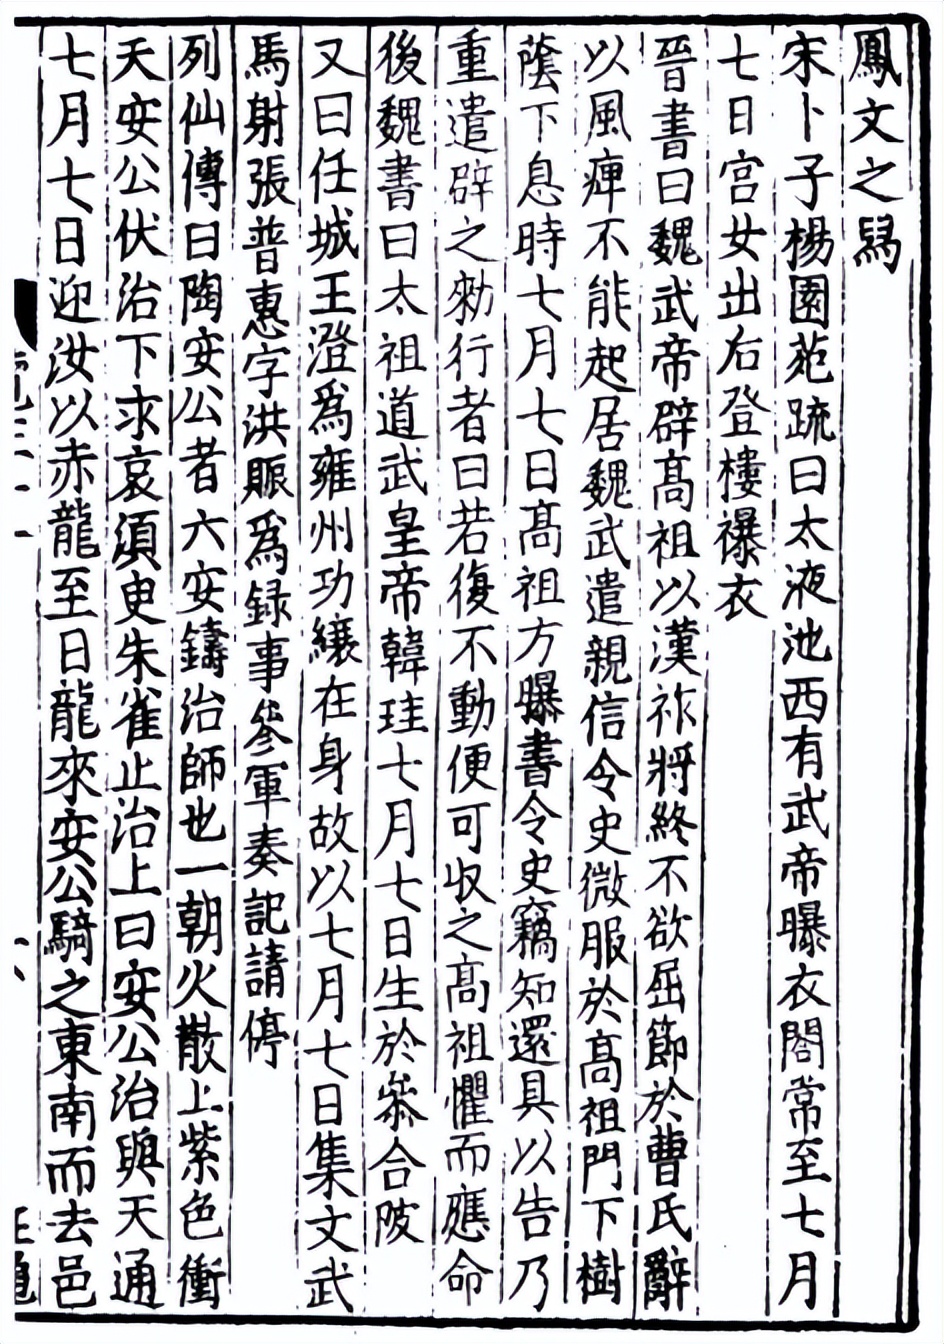 鳳文之舄
宋卜子楊園苑疏曰太液池西有武帝曝衣閣常至七月
七日宮女出右登樓曝衣
晉書曰魏武帝辟高祖以漢祚將終不欲屈節於曹氏辭
以風痺不能起居魏武遣親信令史微服於高祖門下樹
蔭下息時七月七日高祖方曝書令史竊知還具以告乃
重遣辟之勑行者曰若復不動便可收之高祖懼而應命
後魏書曰太祖道武皇帝韓珪七月七日生於叅合陂
又曰任城王澄爲雍州功纕在身故以七月七日集文武
馬射張普惠字洪賑爲録事叅軍奏記請停
列仙傳曰陶安公者六安鑄治師也一朝火散上紫色衝
天安公伏治下求哀須臾朱雀止治上曰安公治與天通
七月七日迎汝以赤龍至日龍來安公騎之東南而去邑